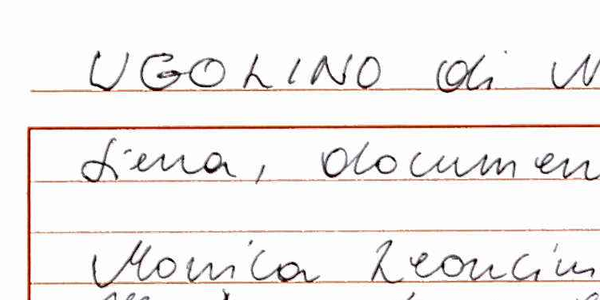 UGOLINO di N
Siena, documen
Monica Leoncin